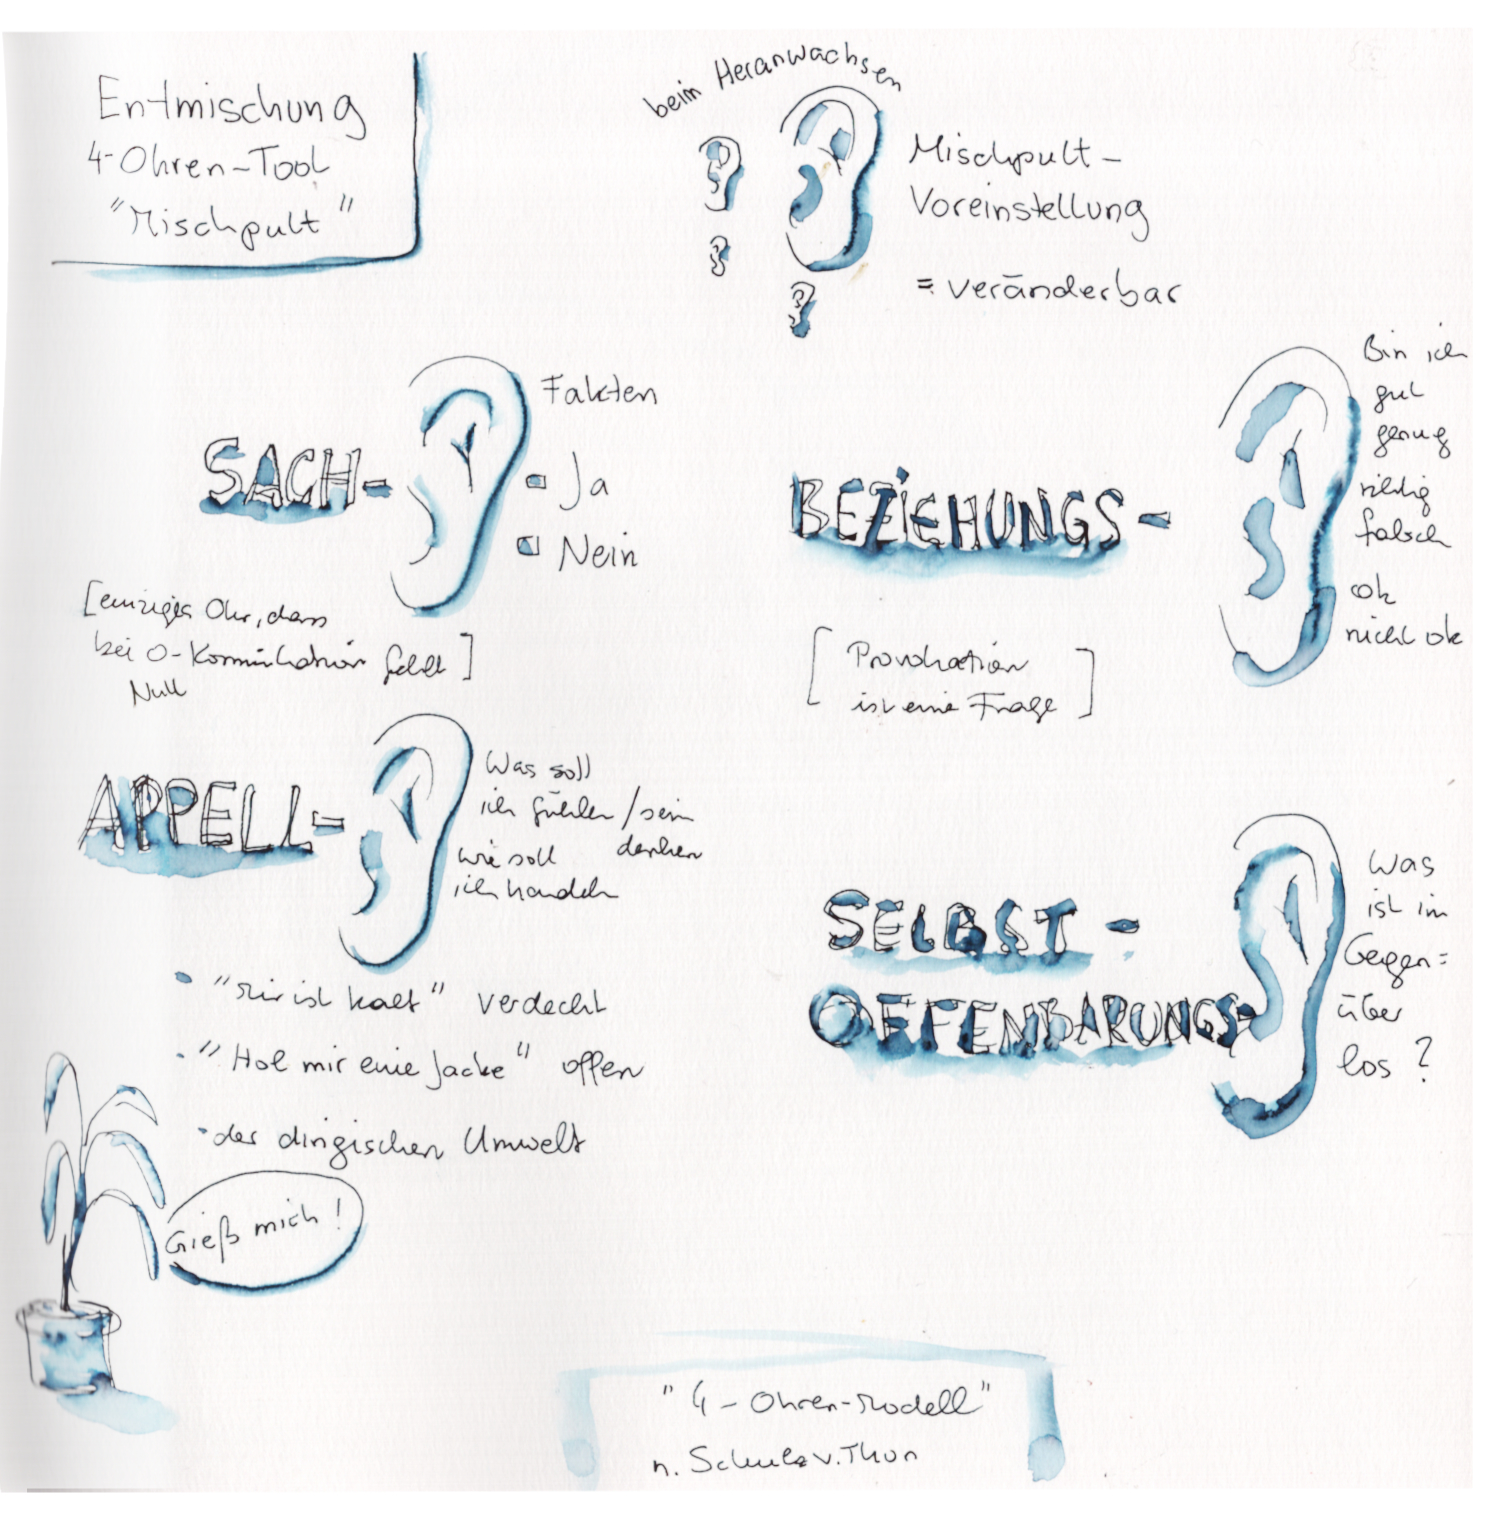 Entmischung
4-Ohren-Tool
"Mischpult"
beim Heranwachsen
Mischpult-
Voreinstellung
= veränderbar
SACH-
Fakten
Ja
Nein
[einziges Ohr, dass
bei 0-Kommunikation fehlt]
Null
BEZIEHUNGS-
Bin ich
gut
genug
richtig
falsch
ok
nicht ok
[Provokation
ist eine Frage]
APPELL-
Was soll
ich fühlen / sein
denken
wie soll
ich handeln
"Mir ist kalt" verdeckt
"Hol mir eine Jacke" offen
der dirigischen Umwelt
Gieß mich!
SELBST-
OFFENBARUNGS-
Was
ist im
Gegen=
über
los?
"4-Ohren-Modell"
n. Schulz v. Thun